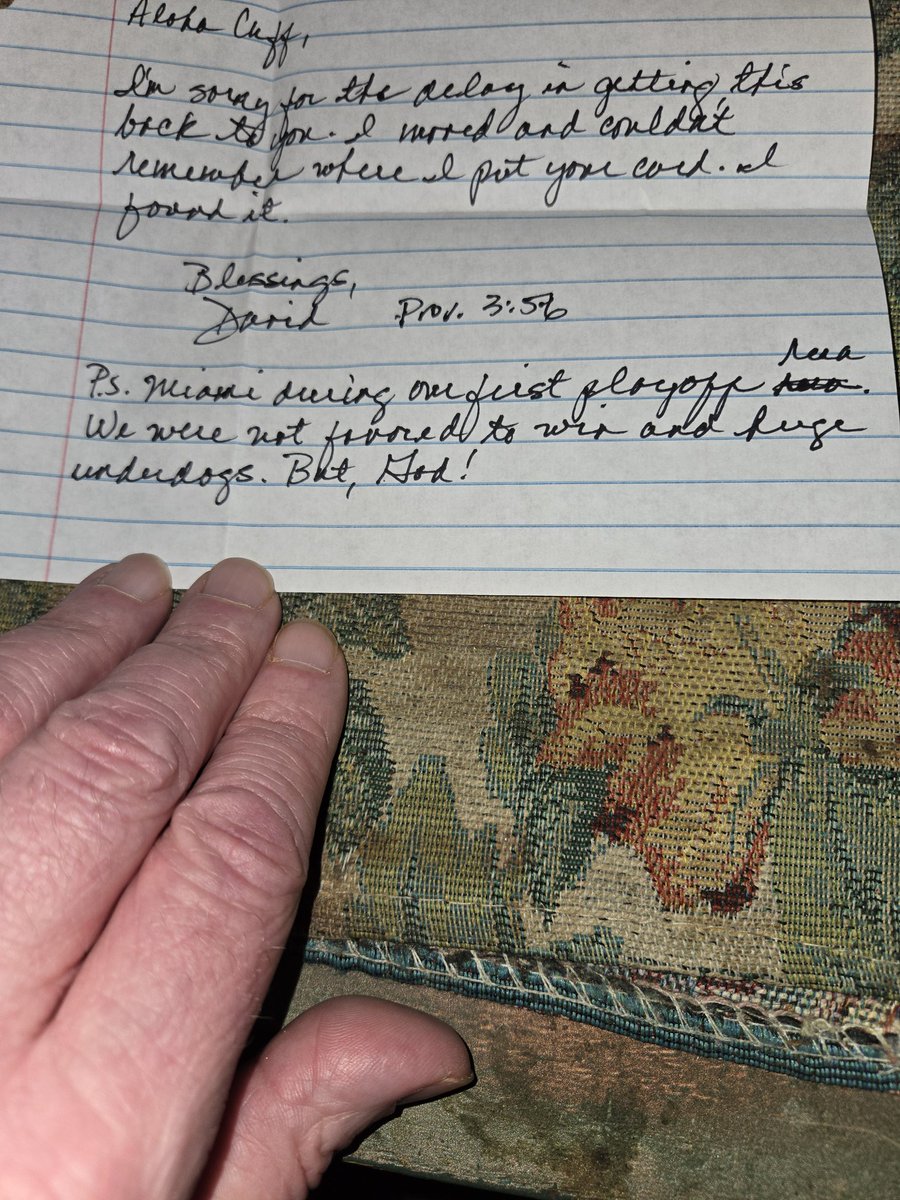 Aloha Cuff,
I'm sorry for the delay in getting this
back to you. I moved and couldn't
remember where I put your card. I
found it.
Blessings,
David Prov. 3:5,6
P.S. Miami during our first playoff run
.
We were not favored to win and huge
underdogs. But, God!